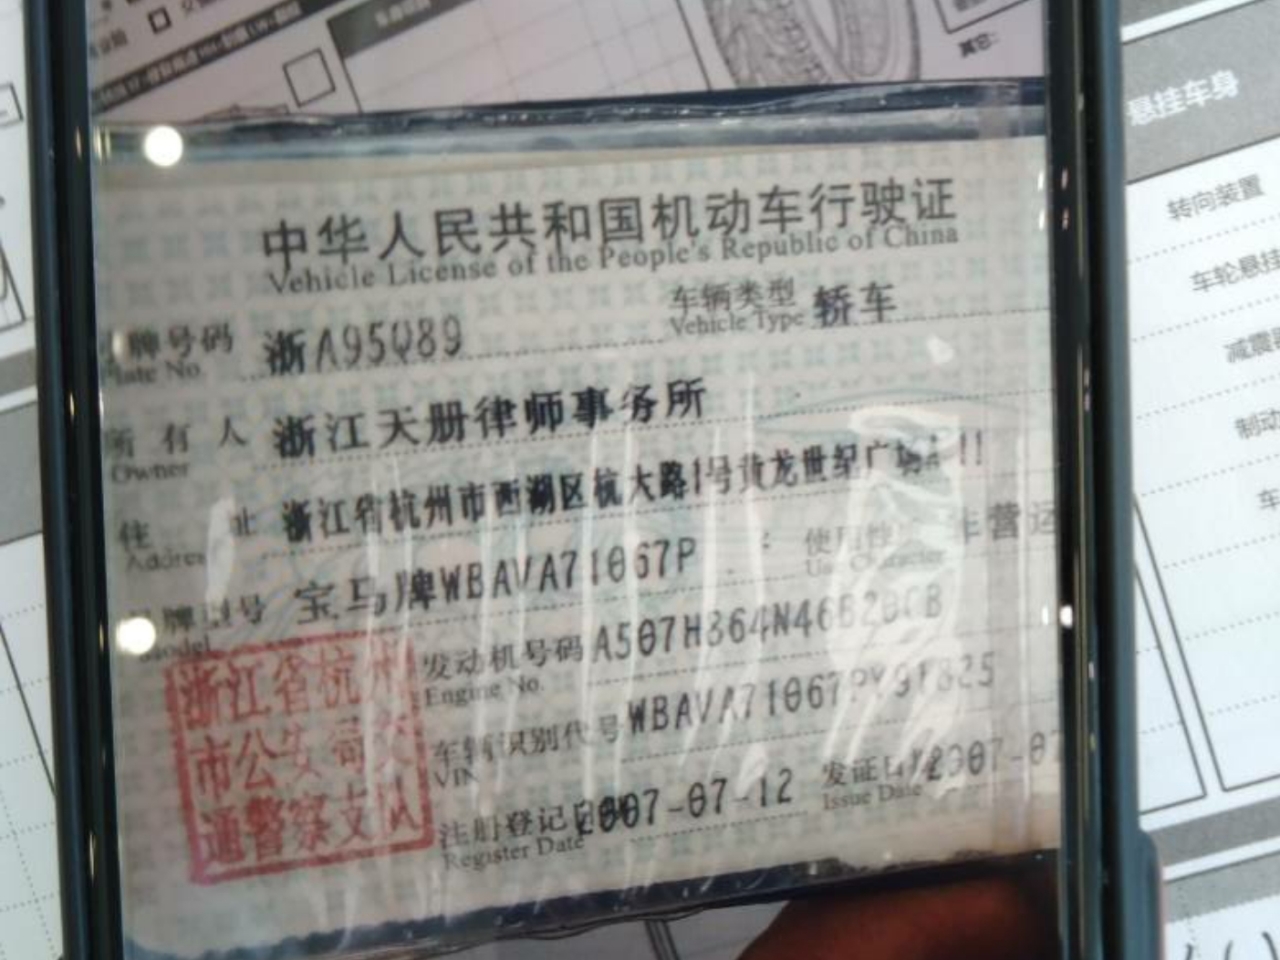 其它:
悬挂车身
转向装置
车轮悬挂
减震器
制动
中华人民共和国机动车行驶证
Vehicle License of the People's Republic of China
牌号码 浙A95Q89 车辆类型 轿车
Plate No. Vehicle Type
所有人 浙江天册律师事务所
Owner
住 址 浙江省杭州市西湖区杭大路1号黄龙世纪广场A-11
Address
宝马牌WBAVA71067P 使用性 非营运
Model Use Character
发动机号码 A507H364N46B20CB
Engine No.
车辆识别代号 WBAVA71067P
VIN
注册登记日期 2007-07-12 发证日期 2007-07
Register Date Issue Date
浙江省杭州
市公安局交
通警察支队